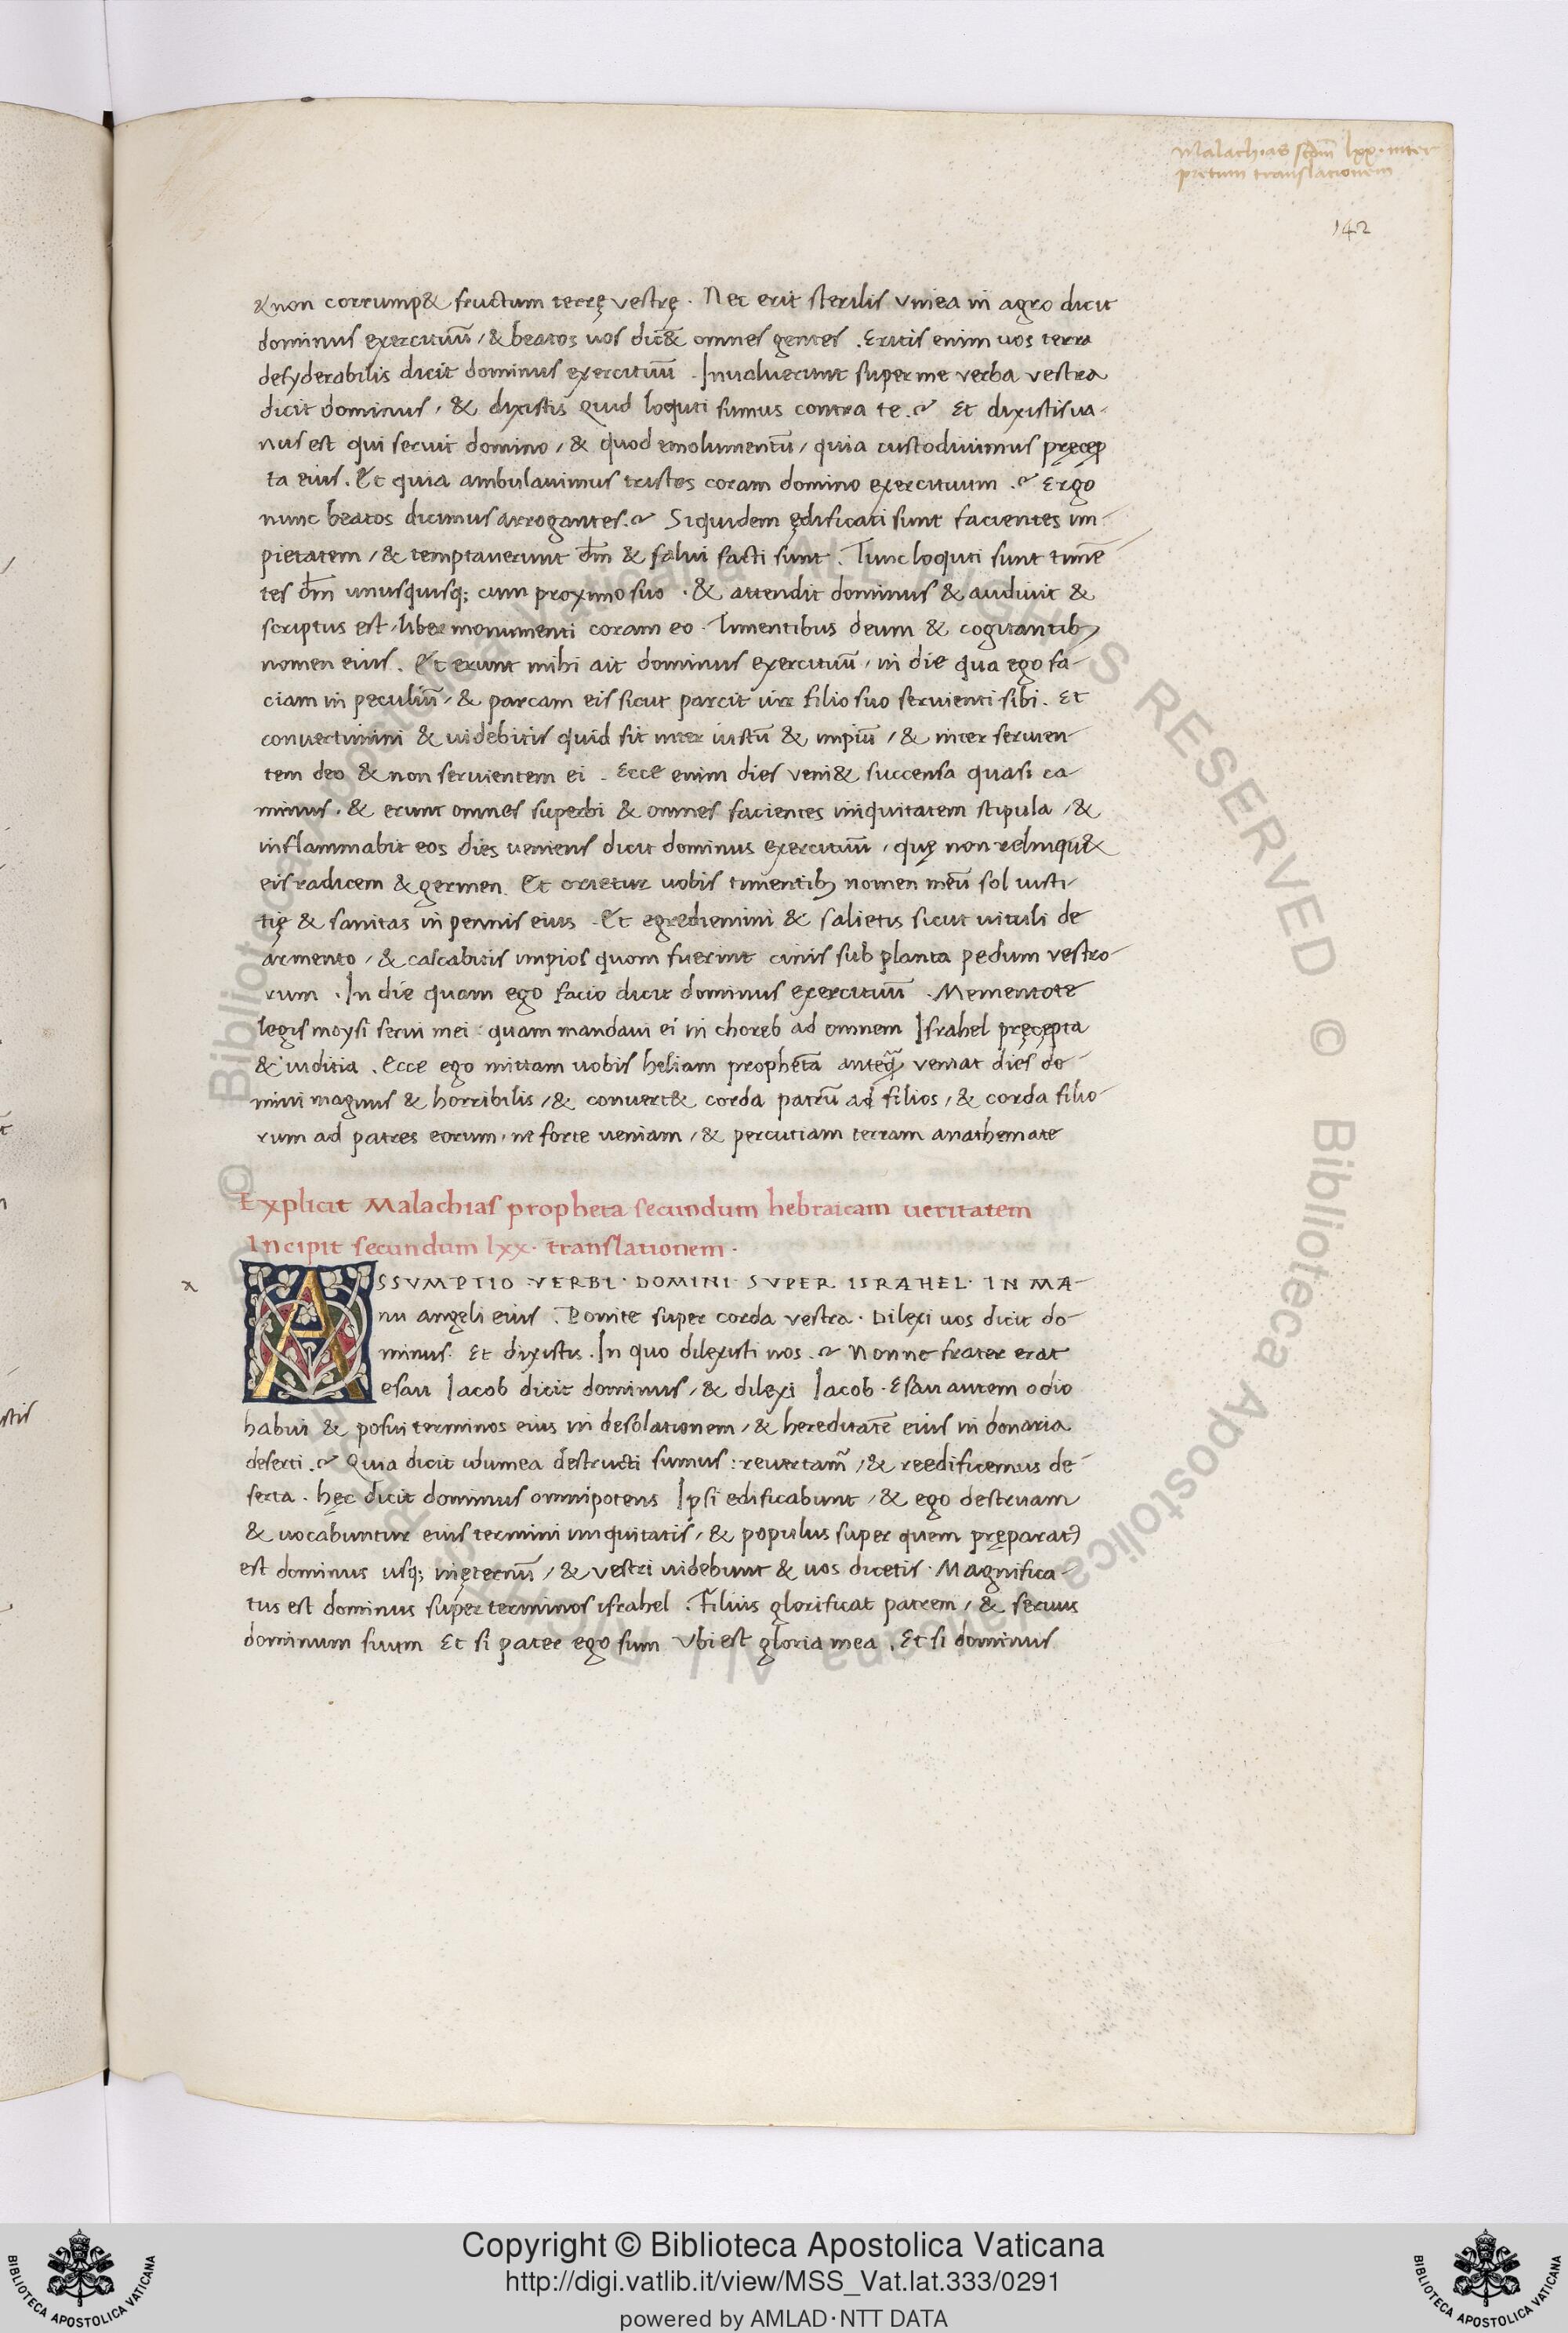 Malachias scdm̄ lxx. inter
pretum translationem
142
& non corrump& fructum terrę vestrę. Nec erit sterilis vinea in agro dicit
dominus exercituū, & beatos uos dic& omnes gentes. Eritis enim uos terra
desyderabilis dicit dominus exercituū. Inualuerunt super me verba vestra
dicit dominus, & dixistis Quid loquti sumus contra te.? Et dixistis ua-
nus est qui seruit domino, & quod emolumentū, quia custodiuimus pręcep
ta eius. Et quia ambulauimus tristes coram domino exercituum.? Ergo
nunc beatos dicimus arrogantes.? Siquidem ędificati sunt facientes im-
pietatem, & temptauerunt dm̄ & salui facti sunt. Tunc loquti sunt timē
tes dm̄ unusquisq; cum proximo suo. & attendit dominus & audiuit &
scriptus est, liber monumenti coram eo. Timentibus deum & cogitantibꝫ
nomen eius. Et erunt mihi ait dominus exercituū, in die qua ego fa-
ciam in peculiū, & parcam eis sicut parcit uir filio suo seruienti sibi. Et
conuertimini & uidebitis quid sit inter iustū & impiū, & inter seruien
tem deo & non seruientem ei. Ecce enim dies veni& succensa quasi ca-
minus. & erunt omnes superbi & omnes facientes iniquitatem stipula, &
inflammabit eos dies ueniens dicit dominus exercituū, quę non relinqu&
eis radicem & germen. Et orietur uobis timentibꝫ nomen meū sol iusti-
tię & sanitas in pennis eius. Et egrediemini & salietis sicut uituli de
armento, & calcabitis impios quom fuerint cinis sub planta pedum vestro-
rum. In die quam ego facio dicit dominus exercituū. Mementote
legis moysi serui mei: quam mandaui ei in choreb ad omnem Israhel pręcępta
& iuditia. Ecce ego mittam uobis heliam prophetā anteꝙ̄ veniat dies do-
mini magnus & horribilis, & conuert& corda patrū ad filios, & corda filio-
rum ad patres eorum, ne forte ueniam, & percutiam terram anathemate
Explicit Malachias propheta secundum hebraicam ueritatem
Incipit secundum lxx. translationem.
ASSVMPTIO VERBI. DOMINI SVPER ISRAHEL. IN MA-
nu angeli eius. Ponite super corda vestra. Dilexi uos dicit do-
minus. Et dixistis. In quo dilexisti nos.? Nonne frater erat
esau Iacob dicit dominus, & dilexi Iacob. Esau autem odio
habui & posui terminos eius in desolationem, & hereditatē eius in donaria
deserti.? Quia dicit idumea destructi sumus: reuertam̄, & reedificemus de-
serta. hęc dicit dominus omnipotens Ipsi edificabunt, & ego destruam
& uocabuntur eius termini iniquitatis, & populus super quem pręparatꝰ
est dominus usq; inęternū, & vestri uidebunt & uos dicetis. Magnifica-
tus est dominus super terminos israhel. Filius glorificat patrem, & seruus
dominum suum Et si pater ego sum Vbi est gloria mea. Et si dominus
Copyright © Biblioteca Apostolica Vaticana
http://digi.vatlib.it/view/MSS_Vat.lat.333/0291
powered by AMLAD·NTT DATA